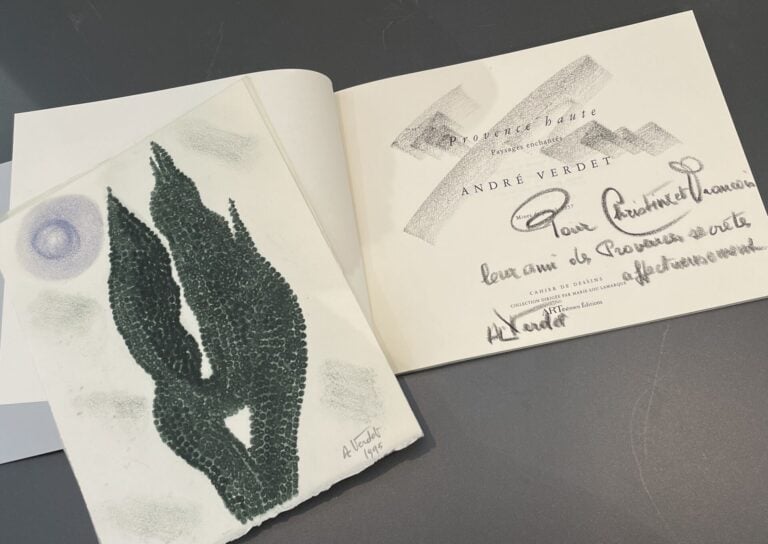 A Verdet
1995
Provence haute
Paysages enchantés
ANDRÉ VERDET
Pour Christine et François
leur ami des Provences secrètes
affectueusement
CAHIER DE DESSINS
COLLECTION DIRIGÉE PAR MARIE-LOU LAMARQUE
Editions
A. Verdet